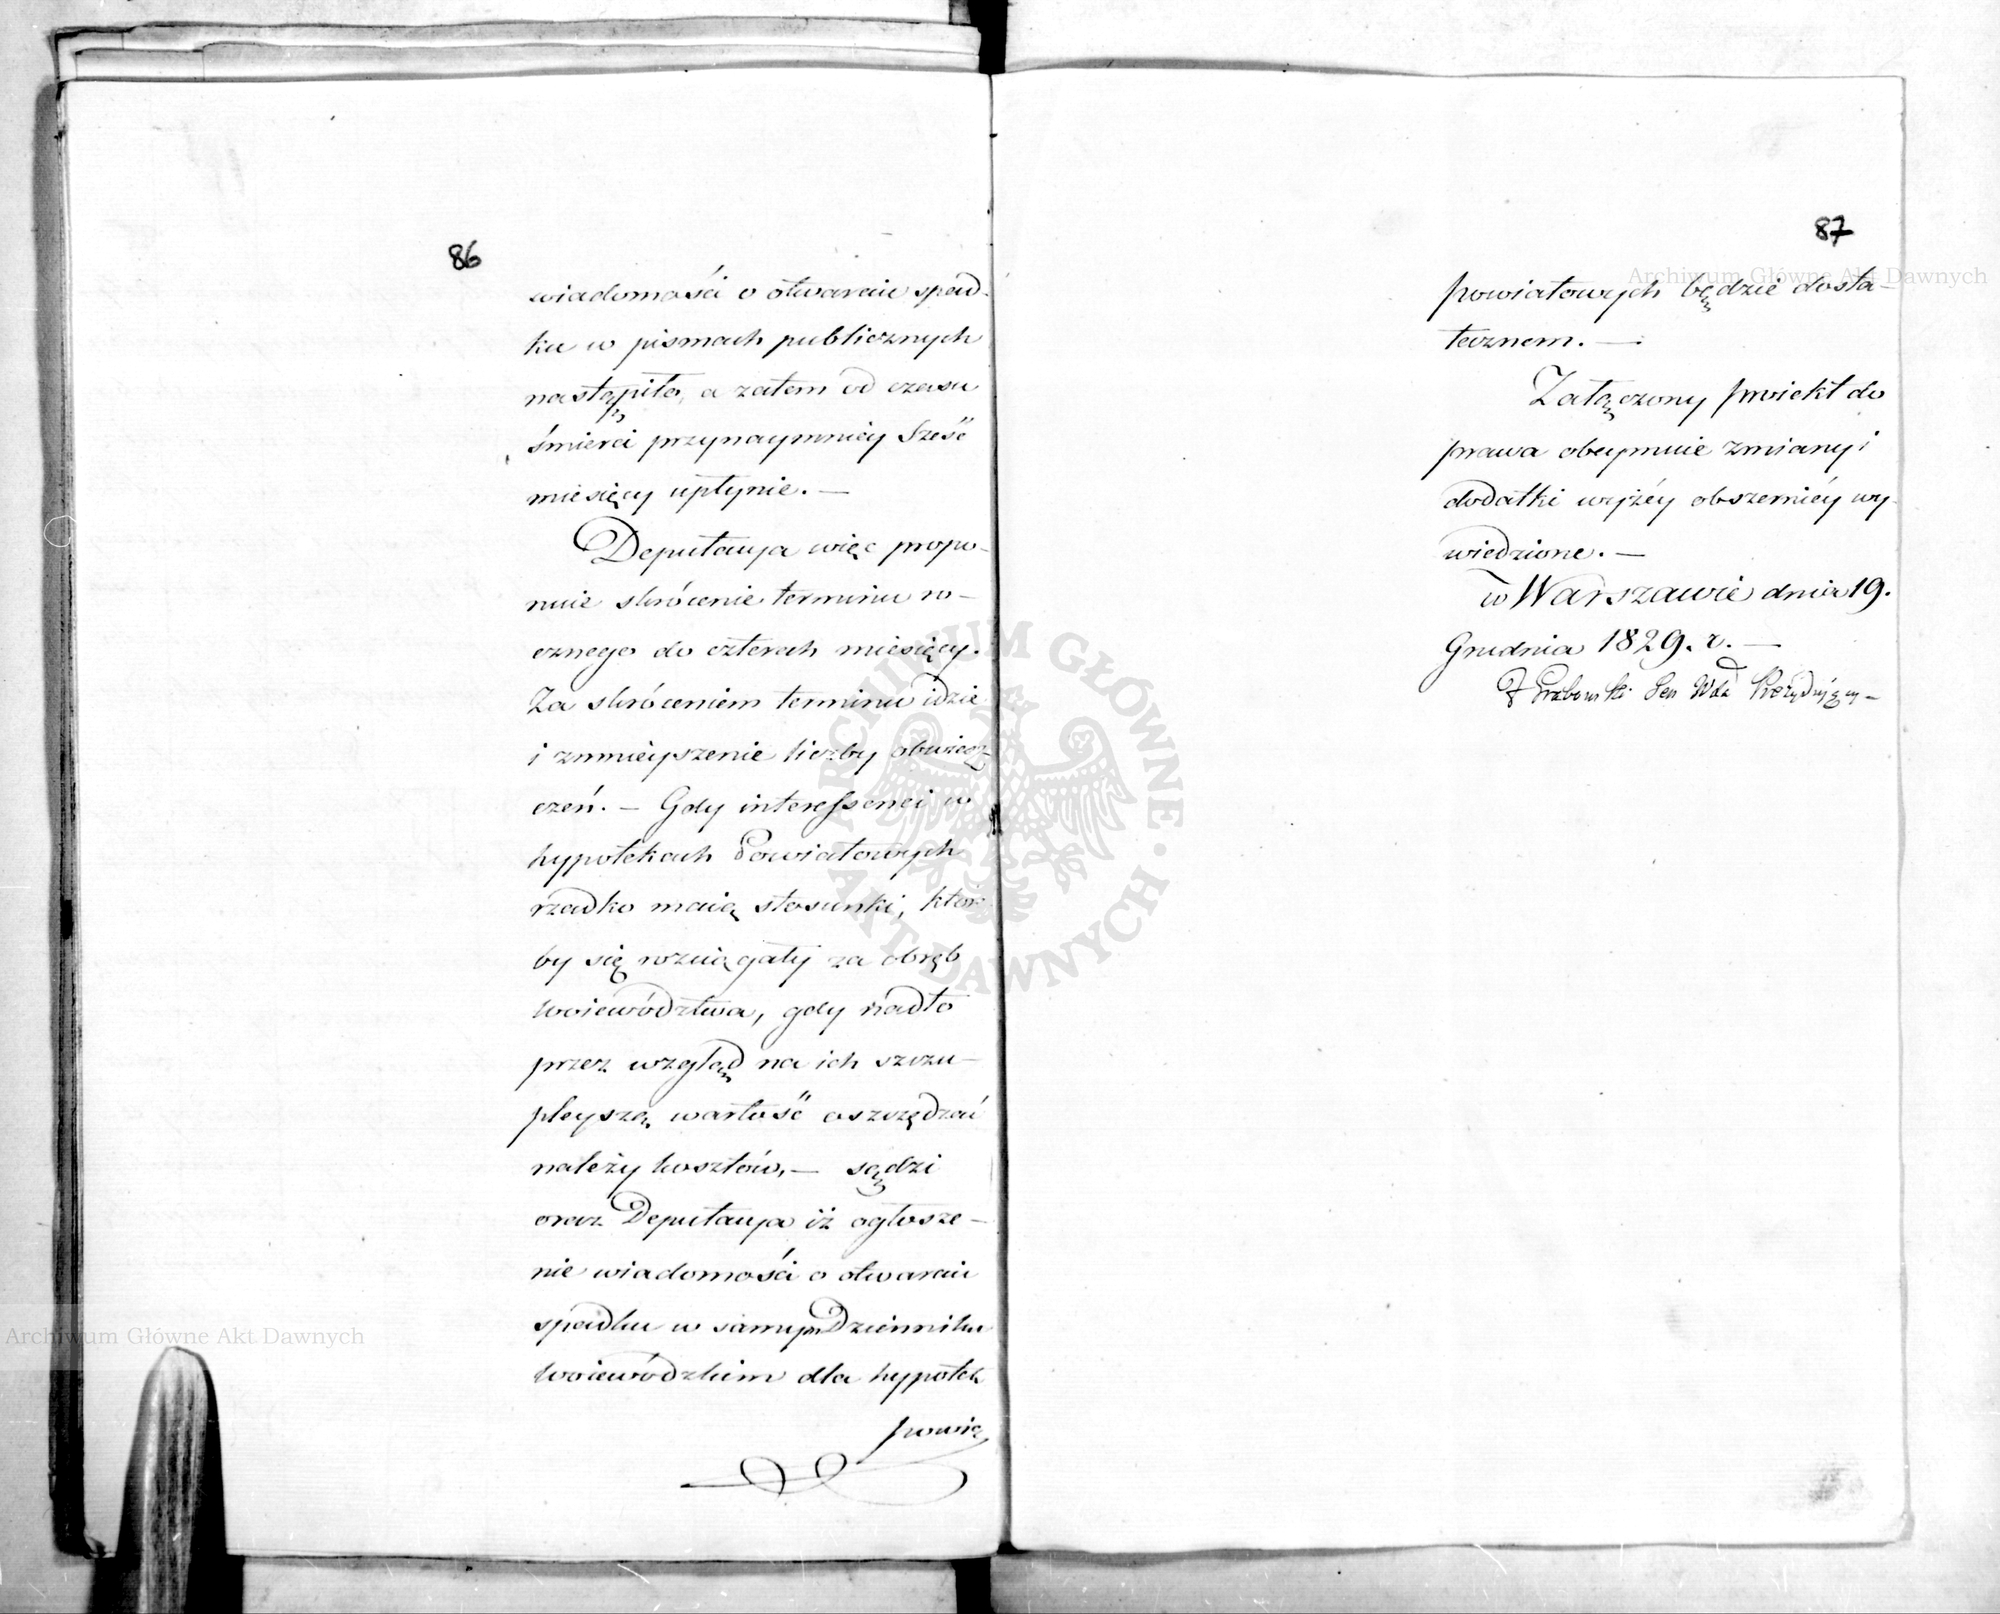 86
wiadomości o otwarciu spad-
ku w pismach publicznych
nastąpiło, a zatem od czasu
śmierci przynaymniey sześć
miesięcy upłynie. —
Deputacya więc propo-
nuie skrócenie terminu ro-
cznego do czterech miesięcy.
Za skróceniem terminu idzie
i zmnieyszenie liczby obwiesz
czeń. — Gdy interessenci w
hypotekach Powiatowych
rzadko maią stosunki, któr
by się rozciągały za obręb
Woiewództwa, gdy nadto
przez wzgląd na ich szczu-
pleyszą wartość oszczędzać
należy kosztów, — sądzi
oraz Deputacya iż ogłosze-
nie wiadomości o otwarciu
spadku w samym Dzienniku
Woiewódzkim dla hypotek
powia
87
powiatowych będzie dosta-
tecznem. —
Załączony proiekt do
prawa obeymuie zmiany i
dodatki wyżéy obszerniéy wy-
wiedzione. —
w Warszawie dnia 19.
Grudnia 1829. r. —
Grabowski Sen Wda Prezyduiący —
Archiwum Główne Akt Dawnych
Archiwum Główne Akt Dawnych
ARCHIWUM GŁÓWNE AKT DAWNYCH